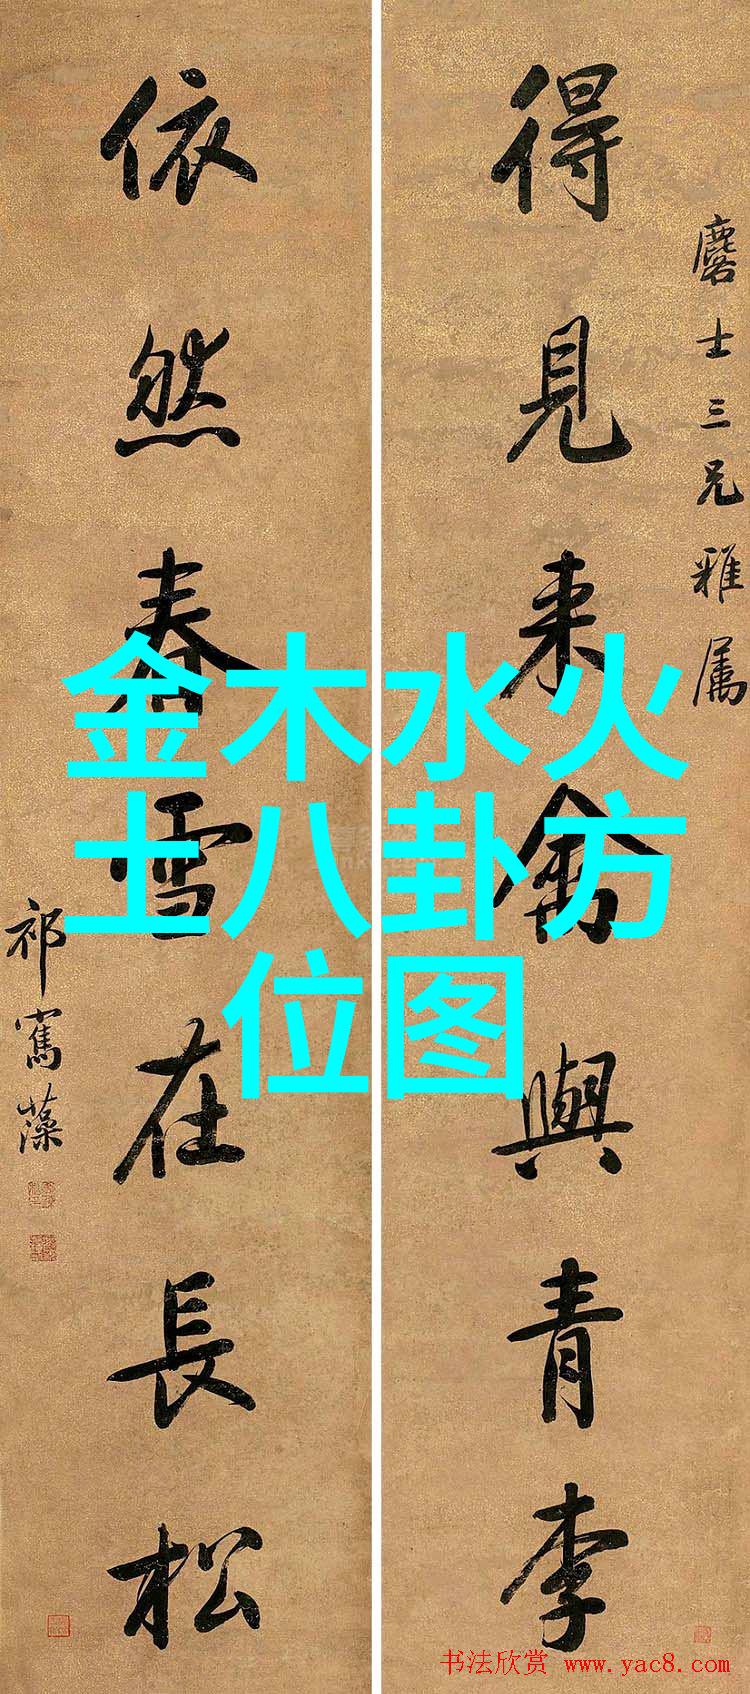 金木水火
土八卦方
位图
麐士三兄雅属
得見来禽與青李
依然春雪在長松
祁寯藻
书法欣赏 www.yac8.com